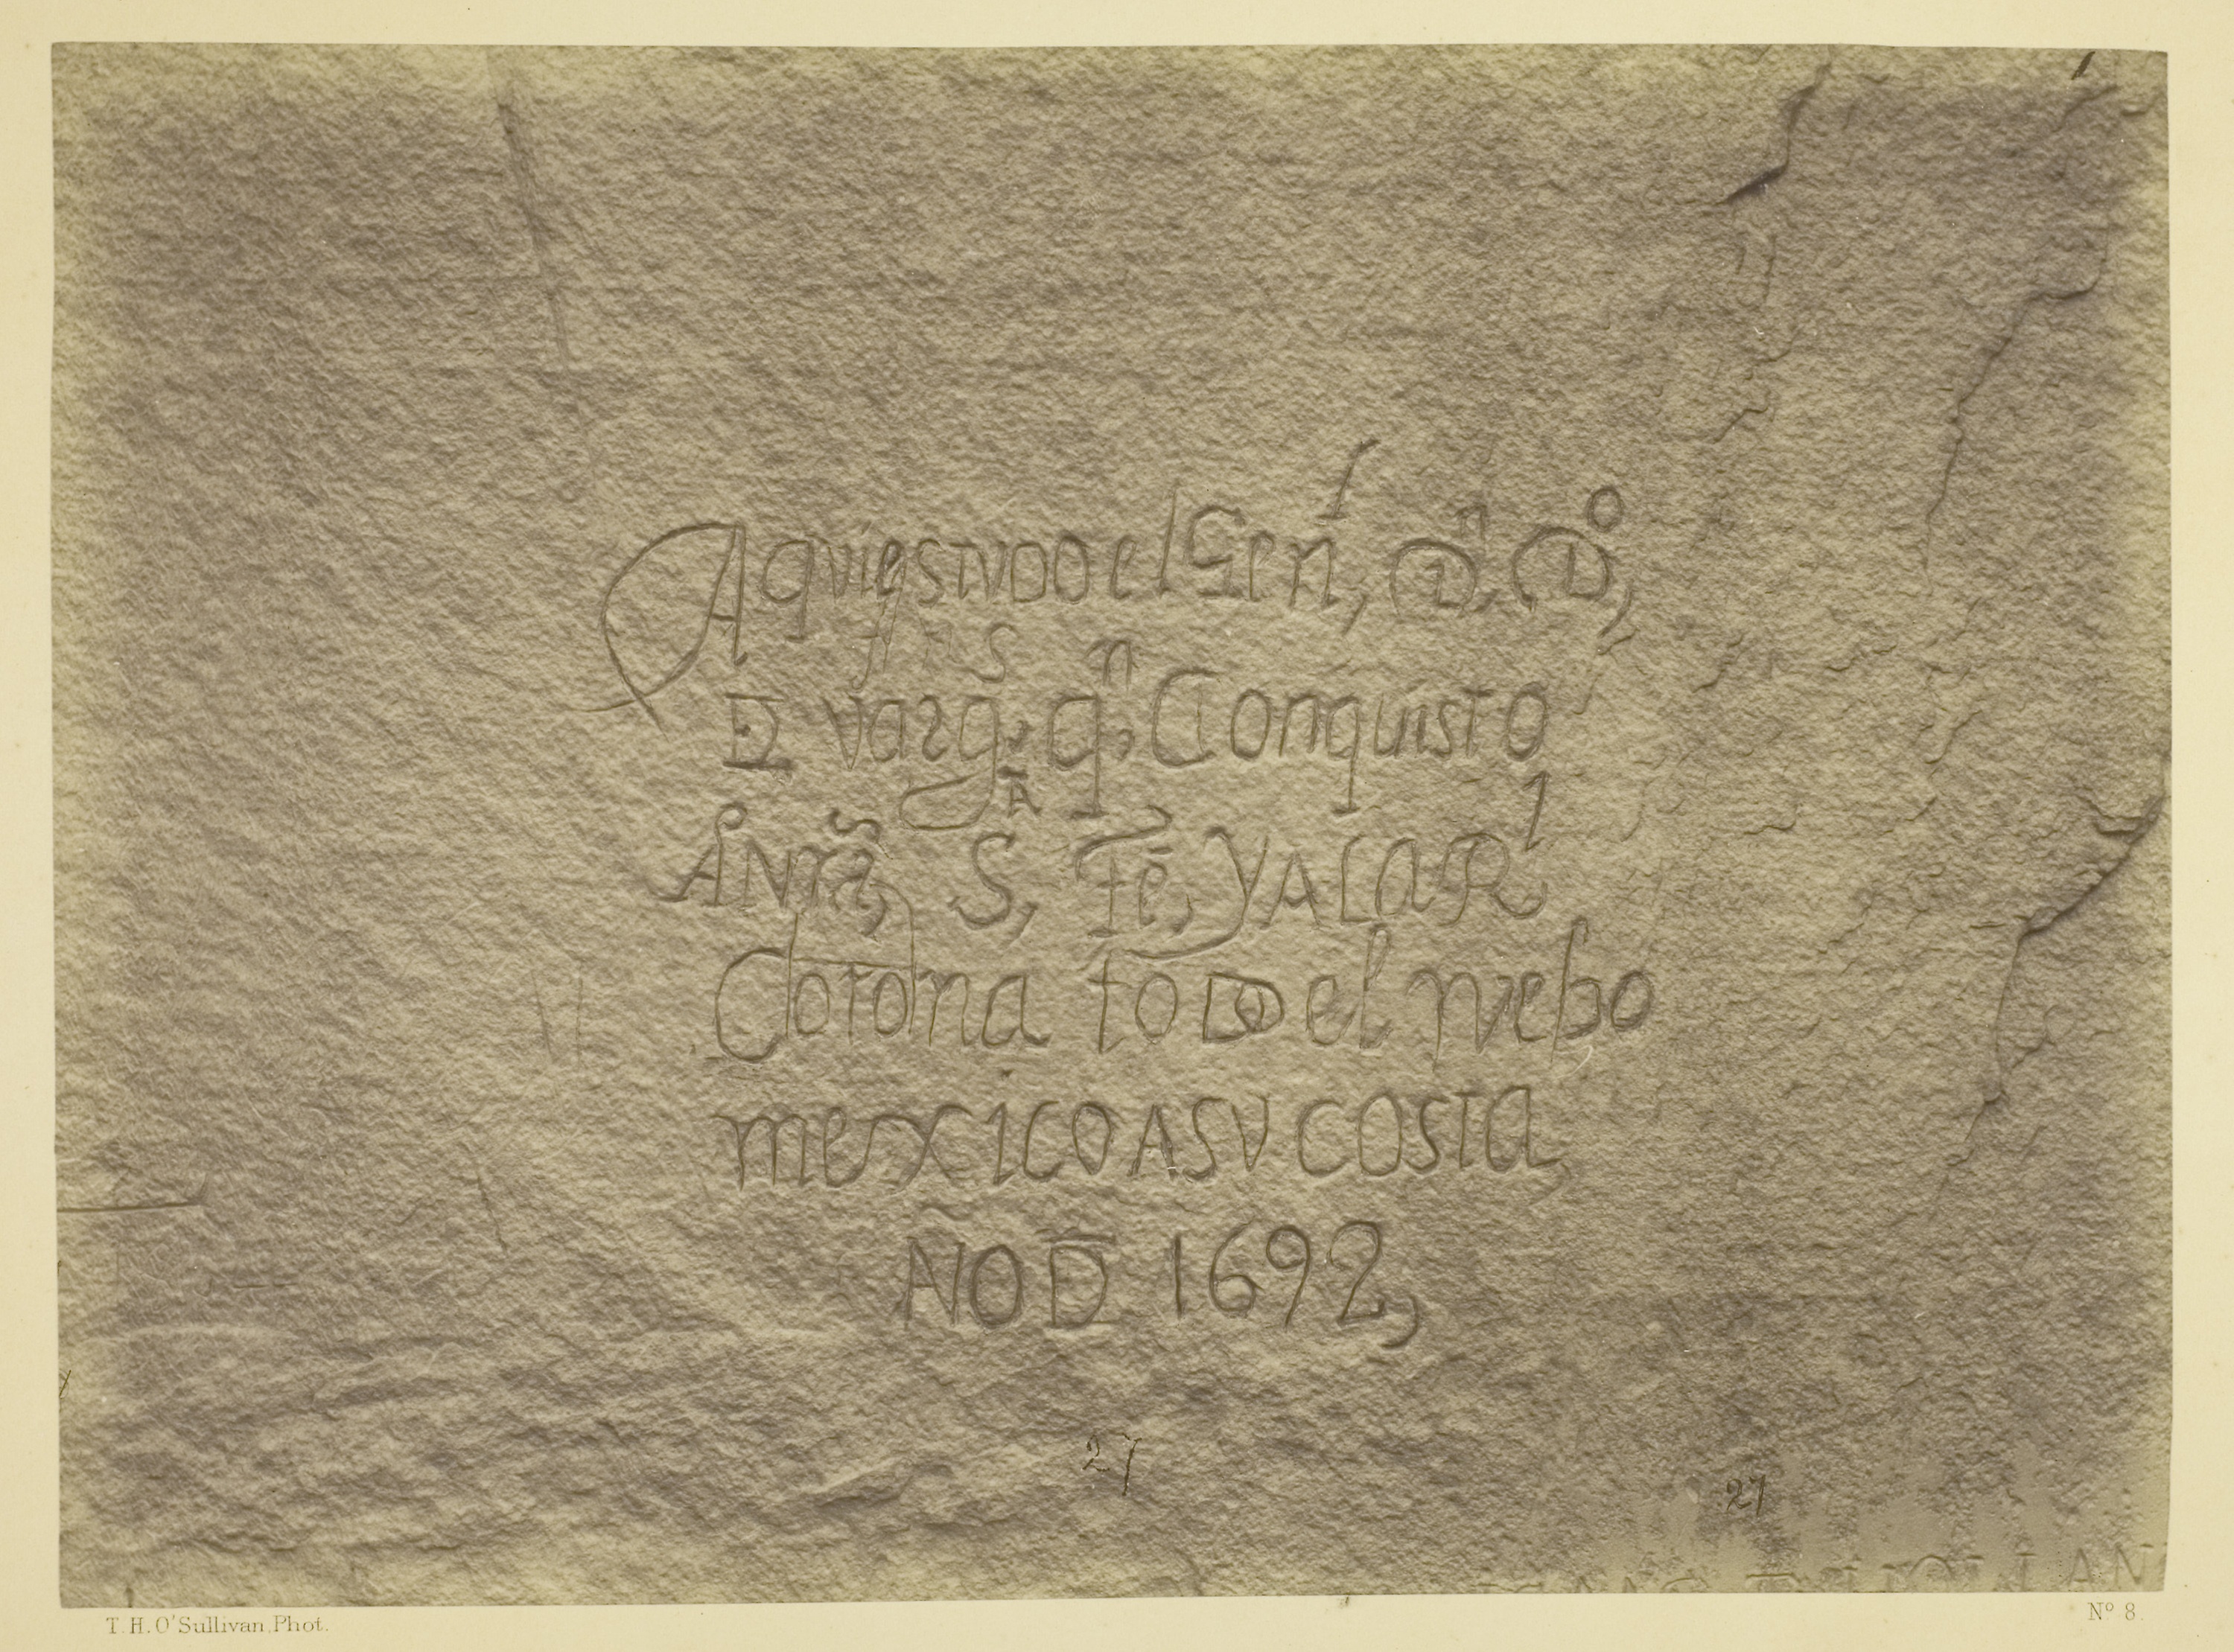 Aqui estuvo el Genˡ, Dⁿ, D°,
DE vargˢ, qⁿ, Conquisto
A Nrā, Sᴬ, Fé, Y A La Rˡ
Corona toDo el nuebo
mexico A SU COSTA,
AÑO D̄ 1692,
27
27
T. H. O'Sullivan, Phot.
Nº 8.